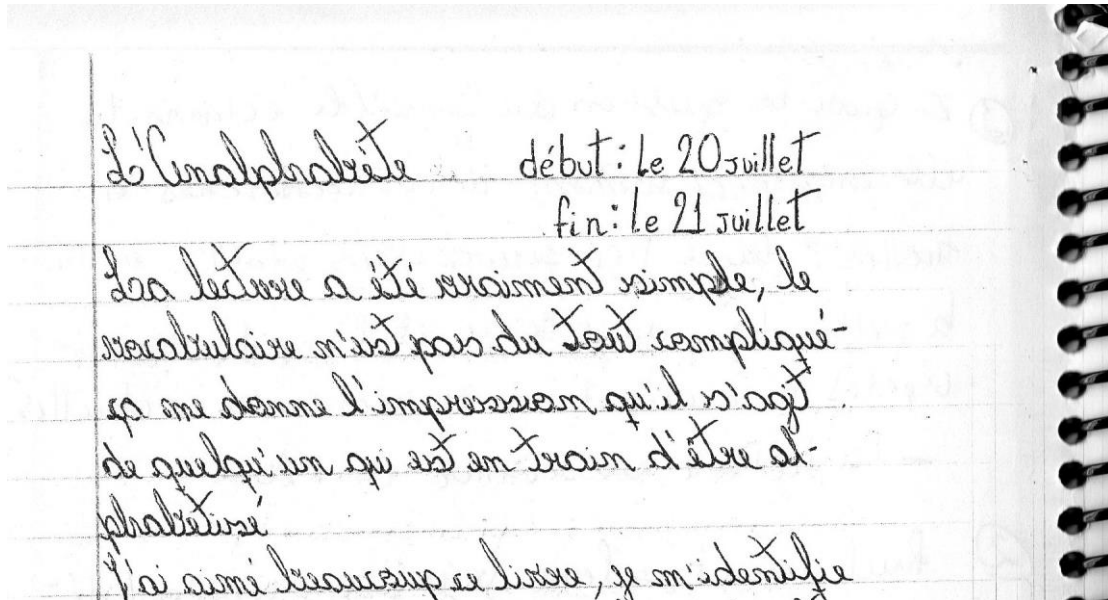 L'Analphabète début: Le 20 juillet
fin: le 21 juillet
La lecture a été vraiment simple, le
vocabulaire n'est pas du tout compliqué-
ça me donne l'impression qu'il s'agit
de quelqu'un qui est en train d'être al-
phabetisé
J'ai aimé beaucoup ce livre, je m'identifie